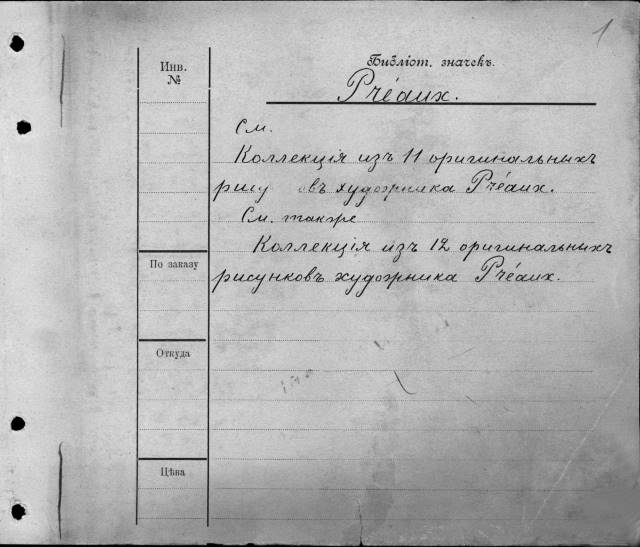 1
Инв.
№
Библіот. значекъ.
Préaux.
См.
Коллекція изъ 11 оригинальныхъ
рису овъ художника Préaux.
См. также
Коллекція изъ 12 оригинальныхъ
рисунковъ художника Préaux.
По заказу
Откуда
Цѣна